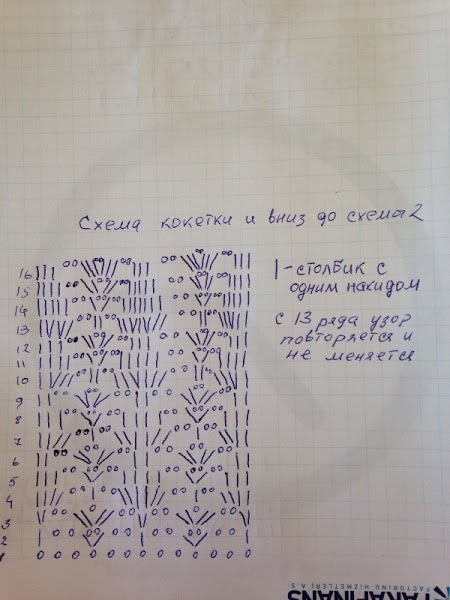 Схема кокетки и вниз до схема 2
| - столбик с
одним накидом
с 13 ряда узор
повторяется и
не меняется
16
15
14
13
12
11
10
9
8
7
6
5
4
3
2
1
FACTORING HİZMETLERİ A.Ş.
KARAFİNANS